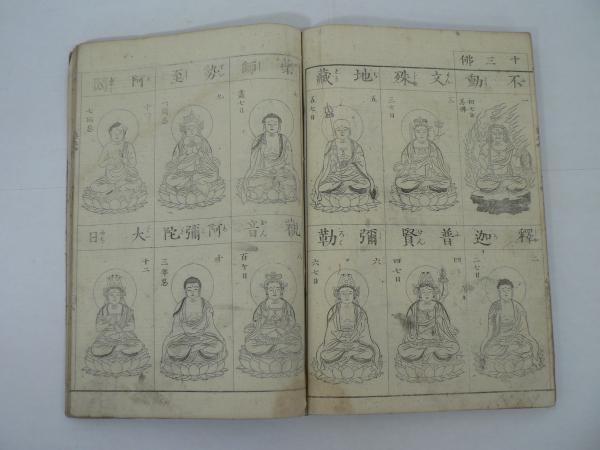 十三佛
不動
一
初七日
文殊
三
三七日
地藏
五
五七日
釋迦
二
二七日
普賢
四
四七日
彌勒
六
六七日
藥師
七
七七日
觀音
八
百ケ日
勢至
九
一周忌
阿彌陀
十
三年忌
阿閦
十一
七回忌
大日
十二